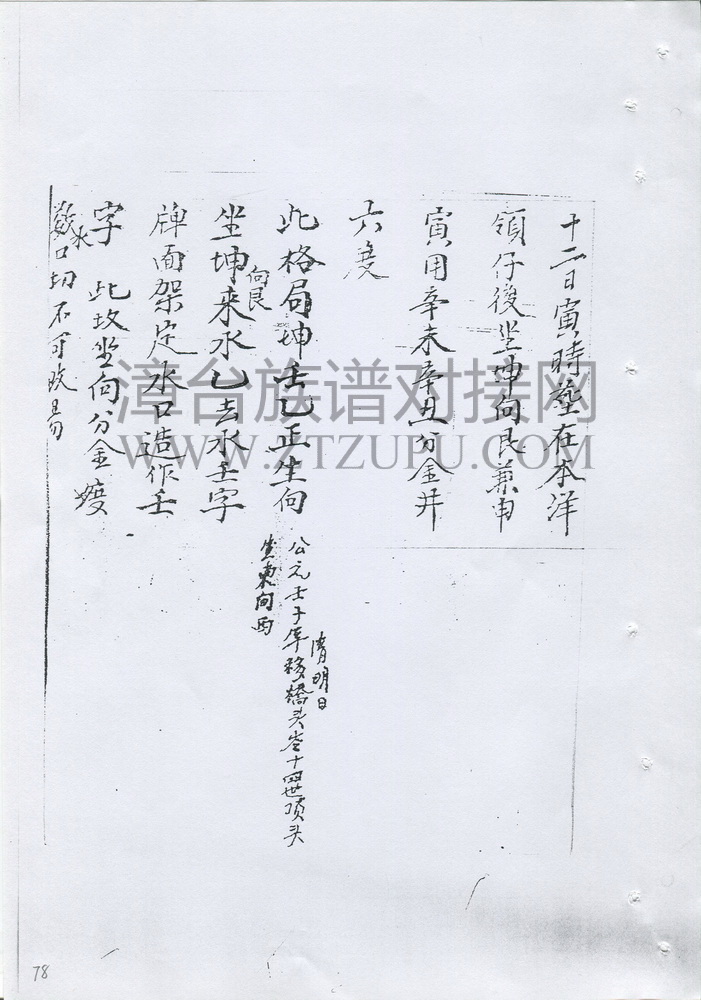 十二日寅時葬在本洋
領仔後坐坤向艮兼申
寅用辛未辛丑分金井
六度
此格局坤壬乙正生向
向艮
坐坤來水乙去水壬字
牌面架定水口造作壬
字 此坟坐向分金
水口切不可改易
清明日
公元壬子年移橋头岺十四世頂头
坐東向西
漳台族谱对接网
WWW.ZTZUPU.COM
78